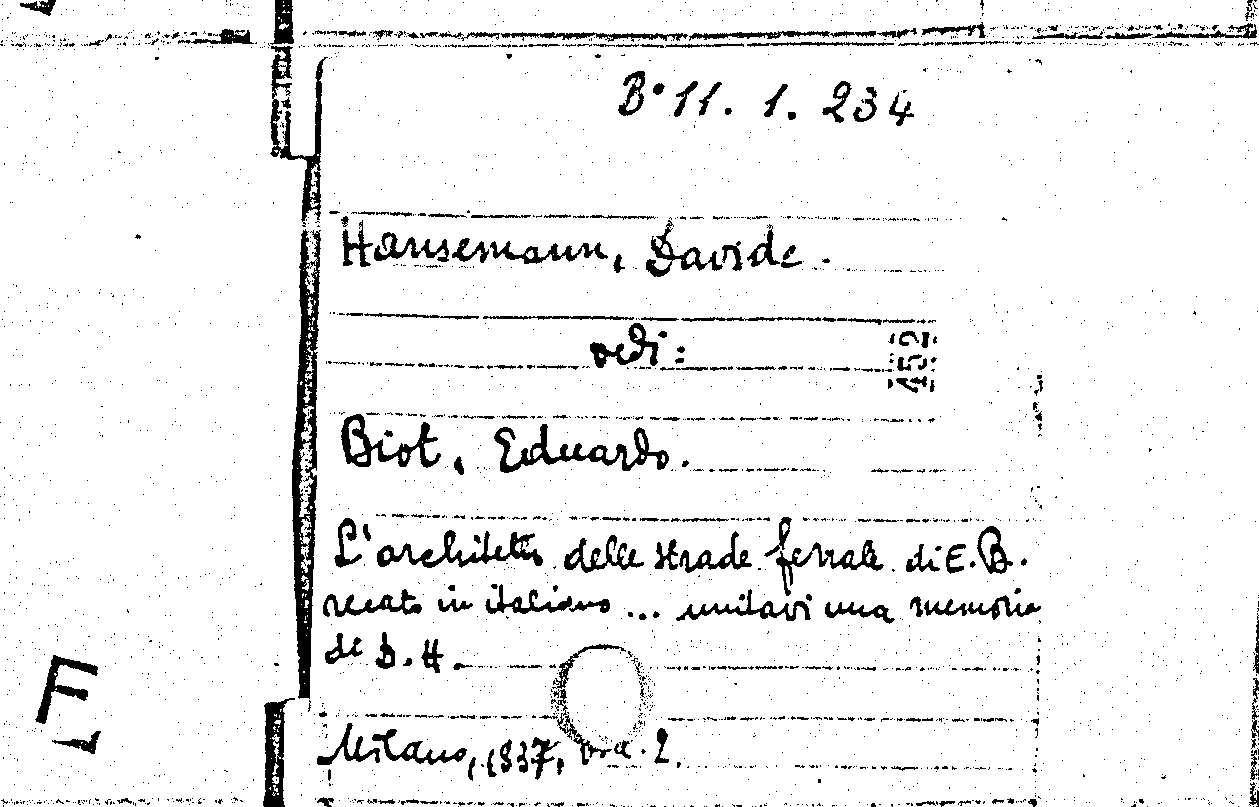 B.11. 1. 234
Hansemann, Davide.
vedi:
452
Biot, Eduardo.
L'architetto delle strade ferrate di E.B.
recato in italiano ... unitavi una memoria
di D.H.
Milano, 1837, 2.
F